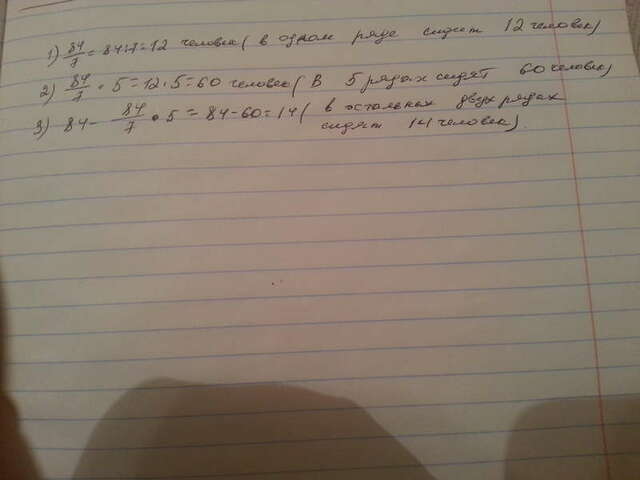 1) 84/7 = 84:7=12 человек( в одном ряде сидит 12 человек)
2) 84/7 • 5=12•5=60 человек( В 5 рядах сидят 60 человек)
3) 84- 84/7 • 5 =84-60=14( в остальных двух рядах
сидят 14 человек).